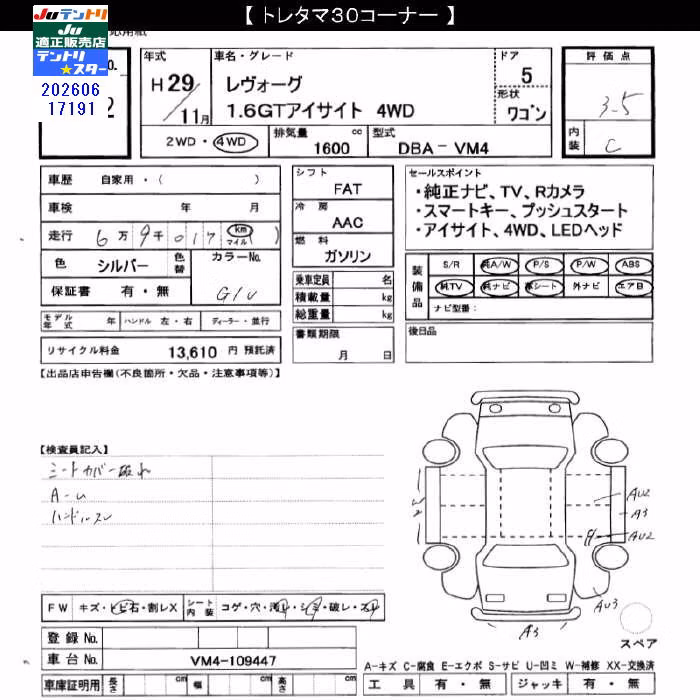 【 トレタマ30コーナー 】
Juテントリ
Ju
適正販売店
テントリ
★スター
202606
17191
応用紙
No.
2
年式
H29/11月
車名・グレード
レヴォーグ
1.6GTアイサイト 4WD
ドア
5
形状
ワゴン
評価点
3-5
内装
C
2WD・4WD
排気量
1600 cc
型式
DBA－VM4
車歴 自家用・( )
車検 年 月
走行 6万9千017 km マイル ( )
色 シルバー
色替
カラーNo.
G1U
保証書 有・無
モデル年式 年
ハンドル 左・右
ディーラー・並行
リサイクル料金 13,610 円 預託済
シフト
FAT
冷房
AAC
燃料
ガソリン
乗車定員 名
積載量 kg
総重量 kg
書類期限
月 日
セールスポイント
・純正ナビ、TV、Rカメラ
・スマートキー、プッシュスタート
・アイサイト、4WD、LEDヘッド
装備品
S/R 純A/W P/S P/W ABS
純TV 純ナビ 革シート 外ナビ エアB
ナビ型番：
後日品
【出品店申告欄(不良箇所・欠品・注意事項等)】
【検査員記入】
シートカバー破れ
A-U
ハンドルスレ
AU2
A3
AU2
AU3
A3
スペア
FW キズ・トビ石・割レX
シート内装 コゲ・穴・汚レ・シミ・破レ・スレ
登録 No.
車台 No. VM4-109447
車庫証明用 長さ cm 幅 cm 高さ cm
A-キズ C-腐食 E-エクボ S-サビ U-凹ミ W-補修 XX-交換済
工具 有・無 ジャッキ 有・無